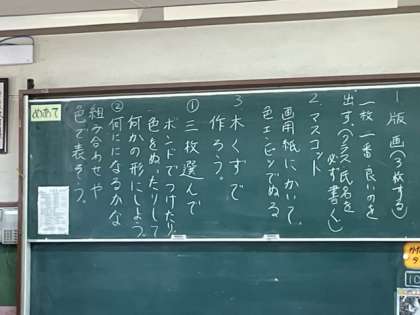 1 版画(3枚する)
一枚一番良いのを
出す。(クラス氏名を
必ず書く)
2 マスコット
画用紙にかいて
色エンピツでぬる
3 木くずで
作ろう。
① 三枚選んで
ボンドでつけたり
色をぬったりして
何かの形にしよう。
② 何にになるかな
組み合わせや
色で表そう。
めあて